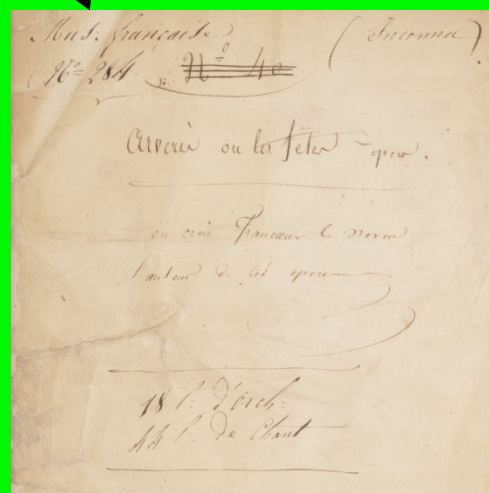 Mus. française (Inconnu)
N.º 284. N.º 40
ou les fêtes opera.
on croit Francœur le neveu
l'auteur de cet opera
18 p. d'orch:
44 p. de Chant